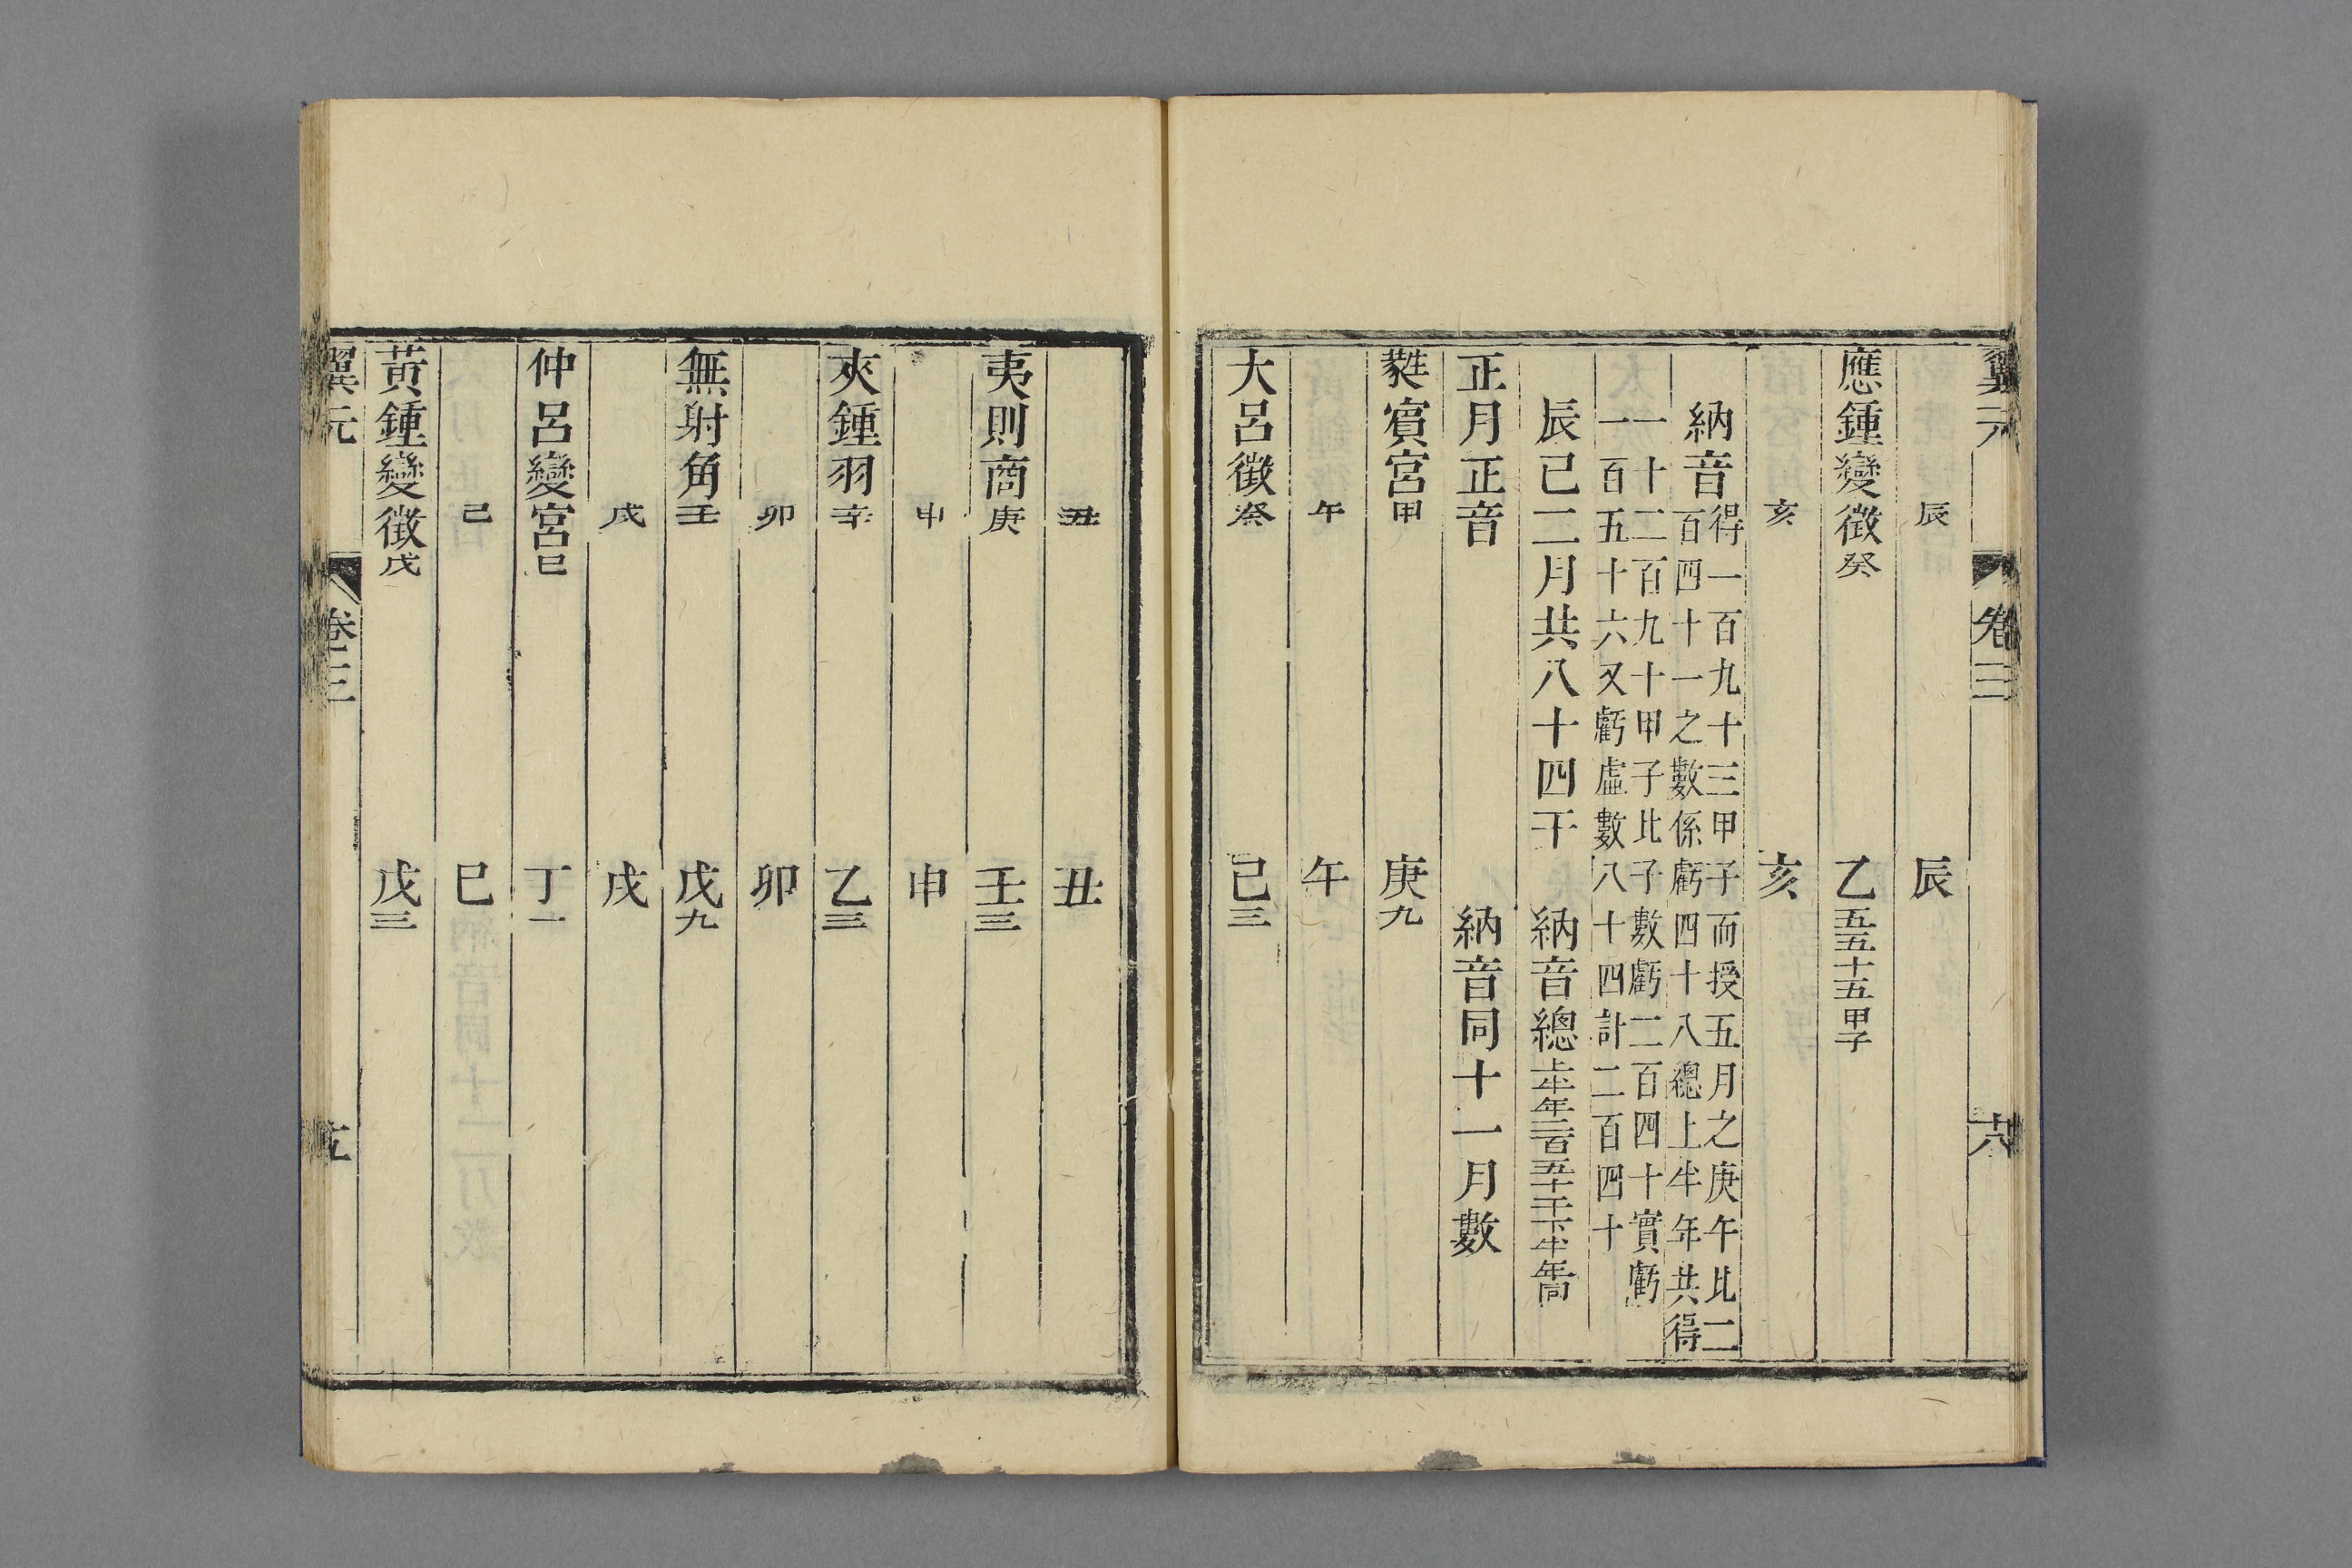 辰 辰
應鍾變徵癸 乙五五十五甲子
亥 亥
納音得一百九十三甲子而授五月之庚午比二
百四十一之數係虧四十八總上半年共得
一十二百九十甲子比子數虧二百四十實虧
一百五十六又虧虛數八十四計二百四十
辰巳二月共八十四干 納音總上半年二百五十干下半年同
正月正音 納音同十一月數
蕤賓宮甲 庚九
午 午
大呂徵癸 己三
卷三
丑 丑
夷則商庚 壬三
申 申
夾鍾羽辛 乙三
卯 卯
無射角壬 戊九
戌 戌
仲呂變宮巳 丁一
巳 巳
黃鍾變徵戊 戊三
翼元 卷三